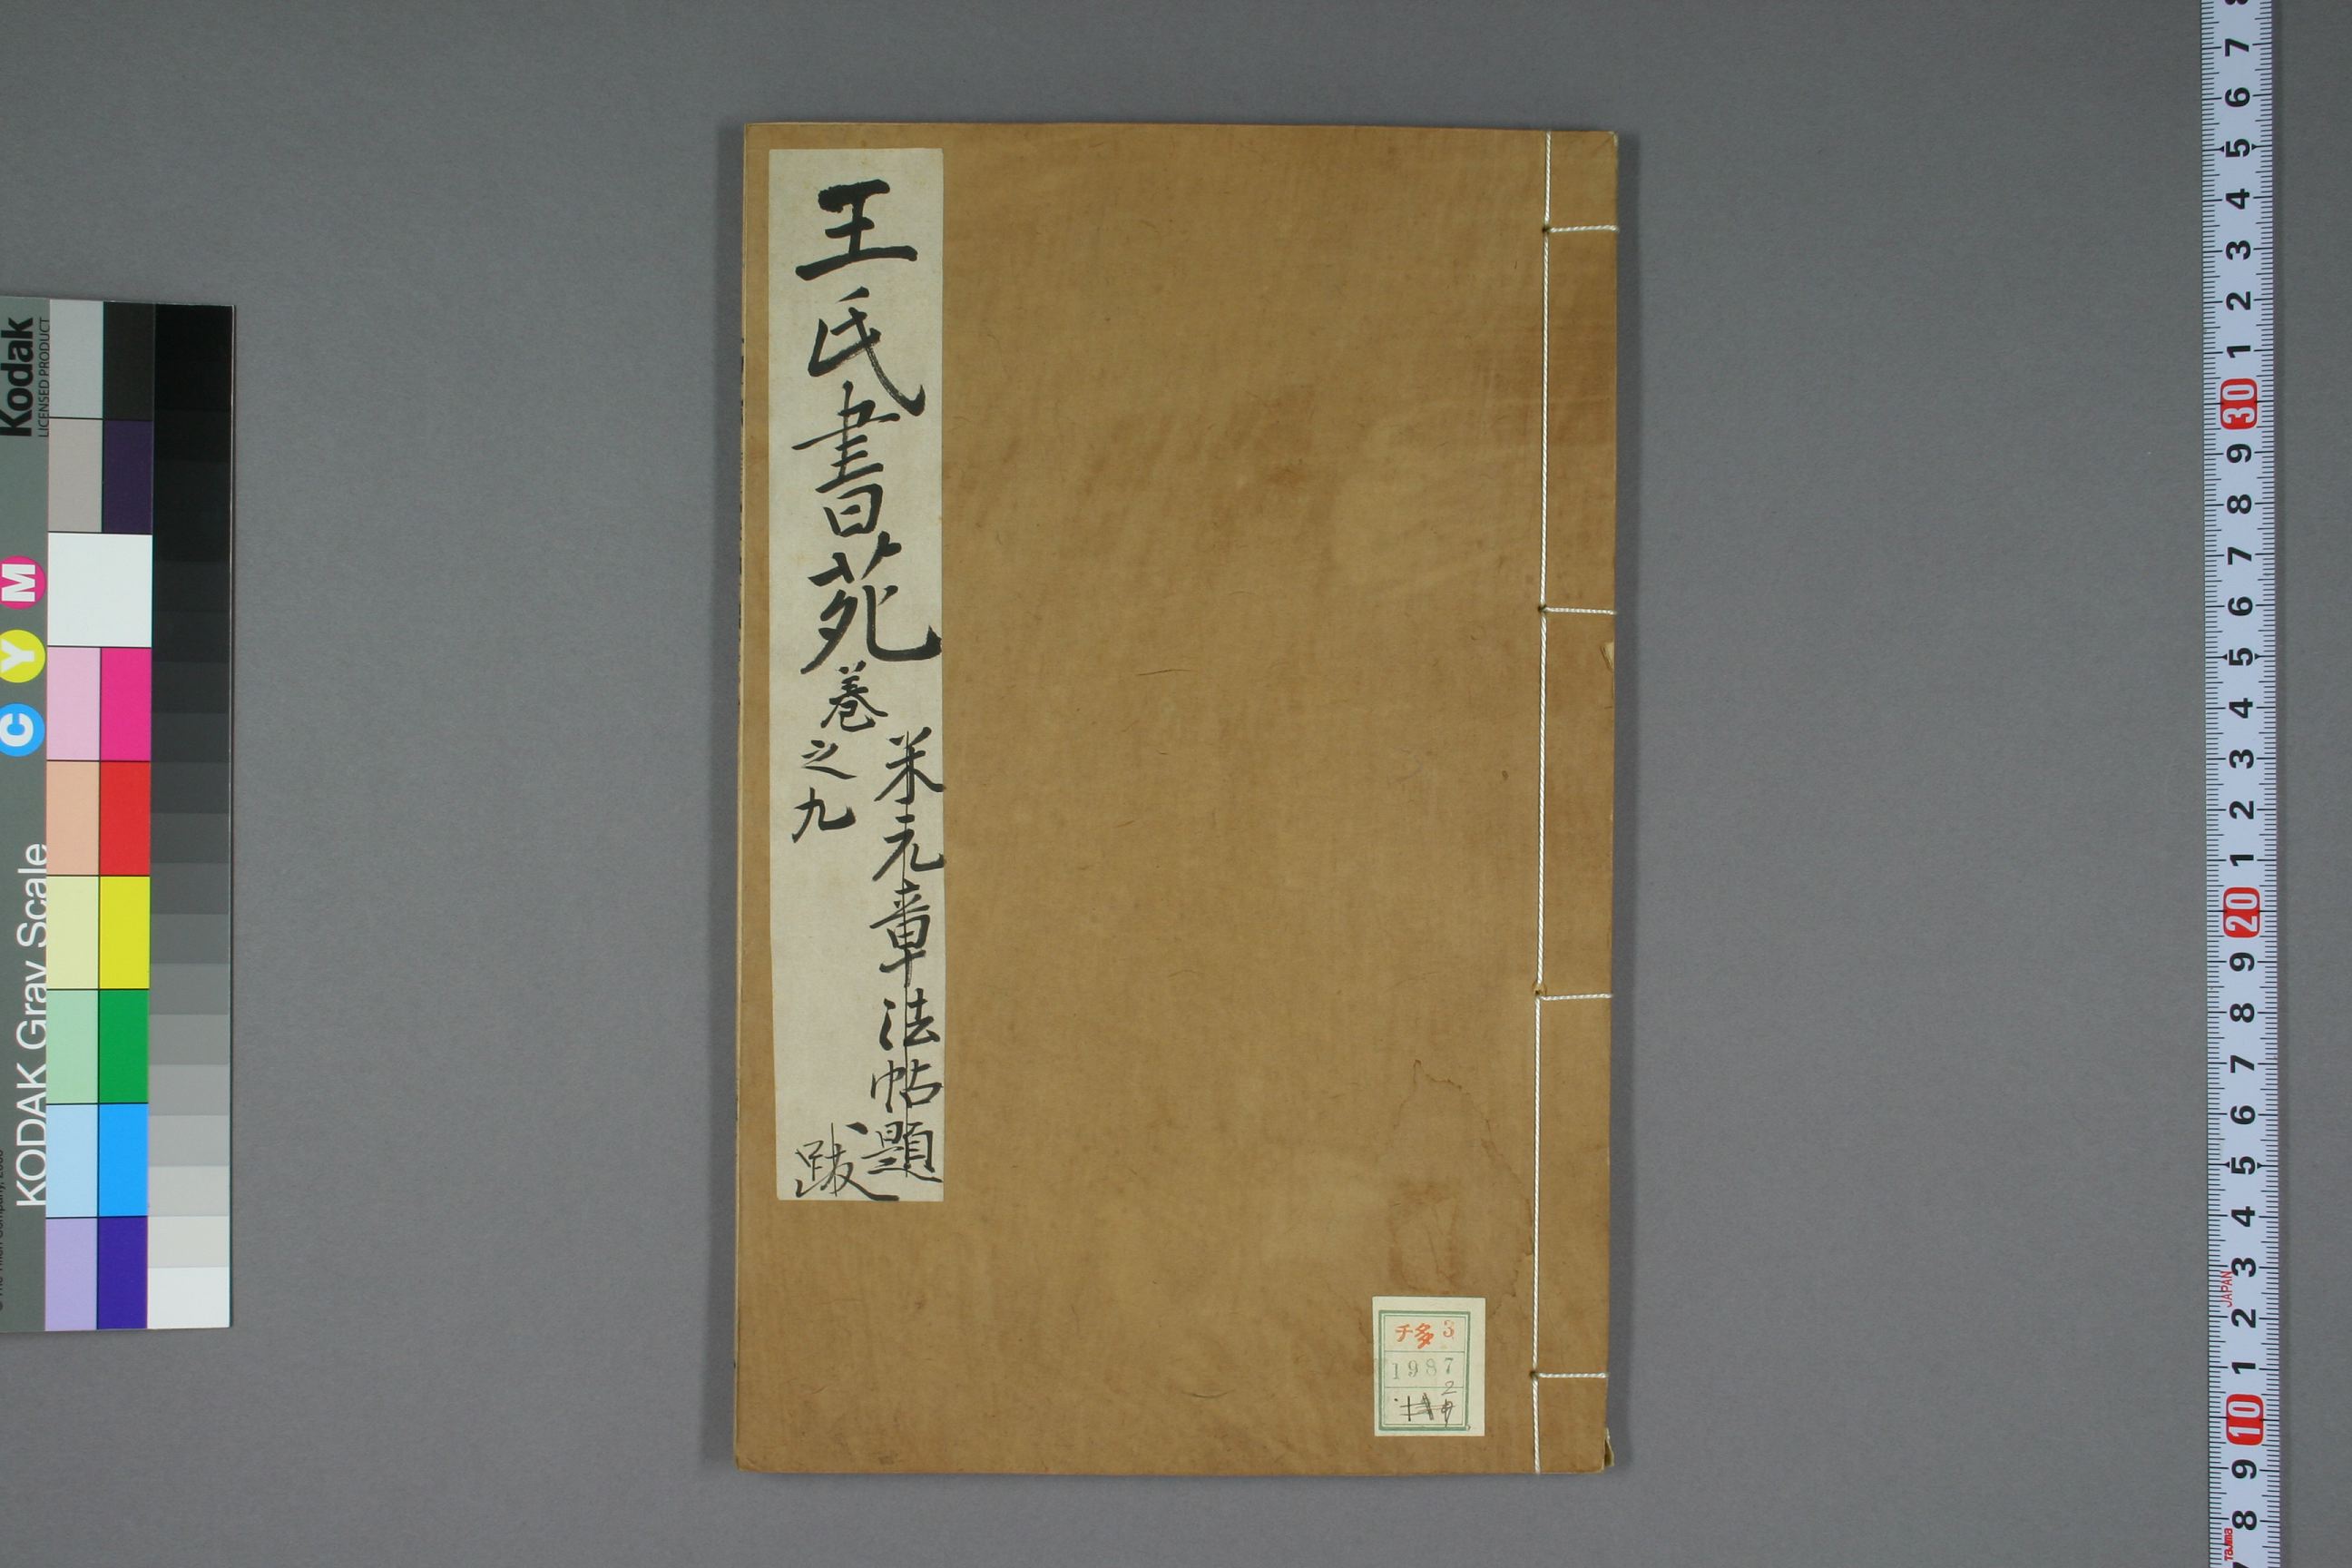 王氏書苑 卷之九
米元章法帖題
跋
チ多 3
1987
2
Kodak
LICENSED PRODUCT
KODAK Gray Scale
C Y M
8 7 6 5 4 3 2 1 30 9 8 7 6 5 4 3 2 1 20 9 8 7 6 5 4 3 2 1 10 9 8
JAPAN
Tajima